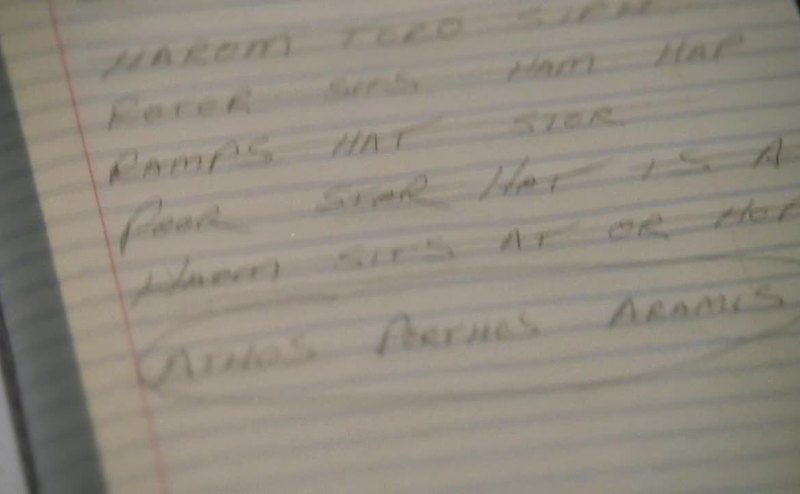 HAROM TORO SIPH
ROTOR SITS HAM HAP
RAMPS HAT STOR
POOR STAR HAT IS A
HAROM SITS AT OR HOP
ATHOS PORTHOS ARAMIS